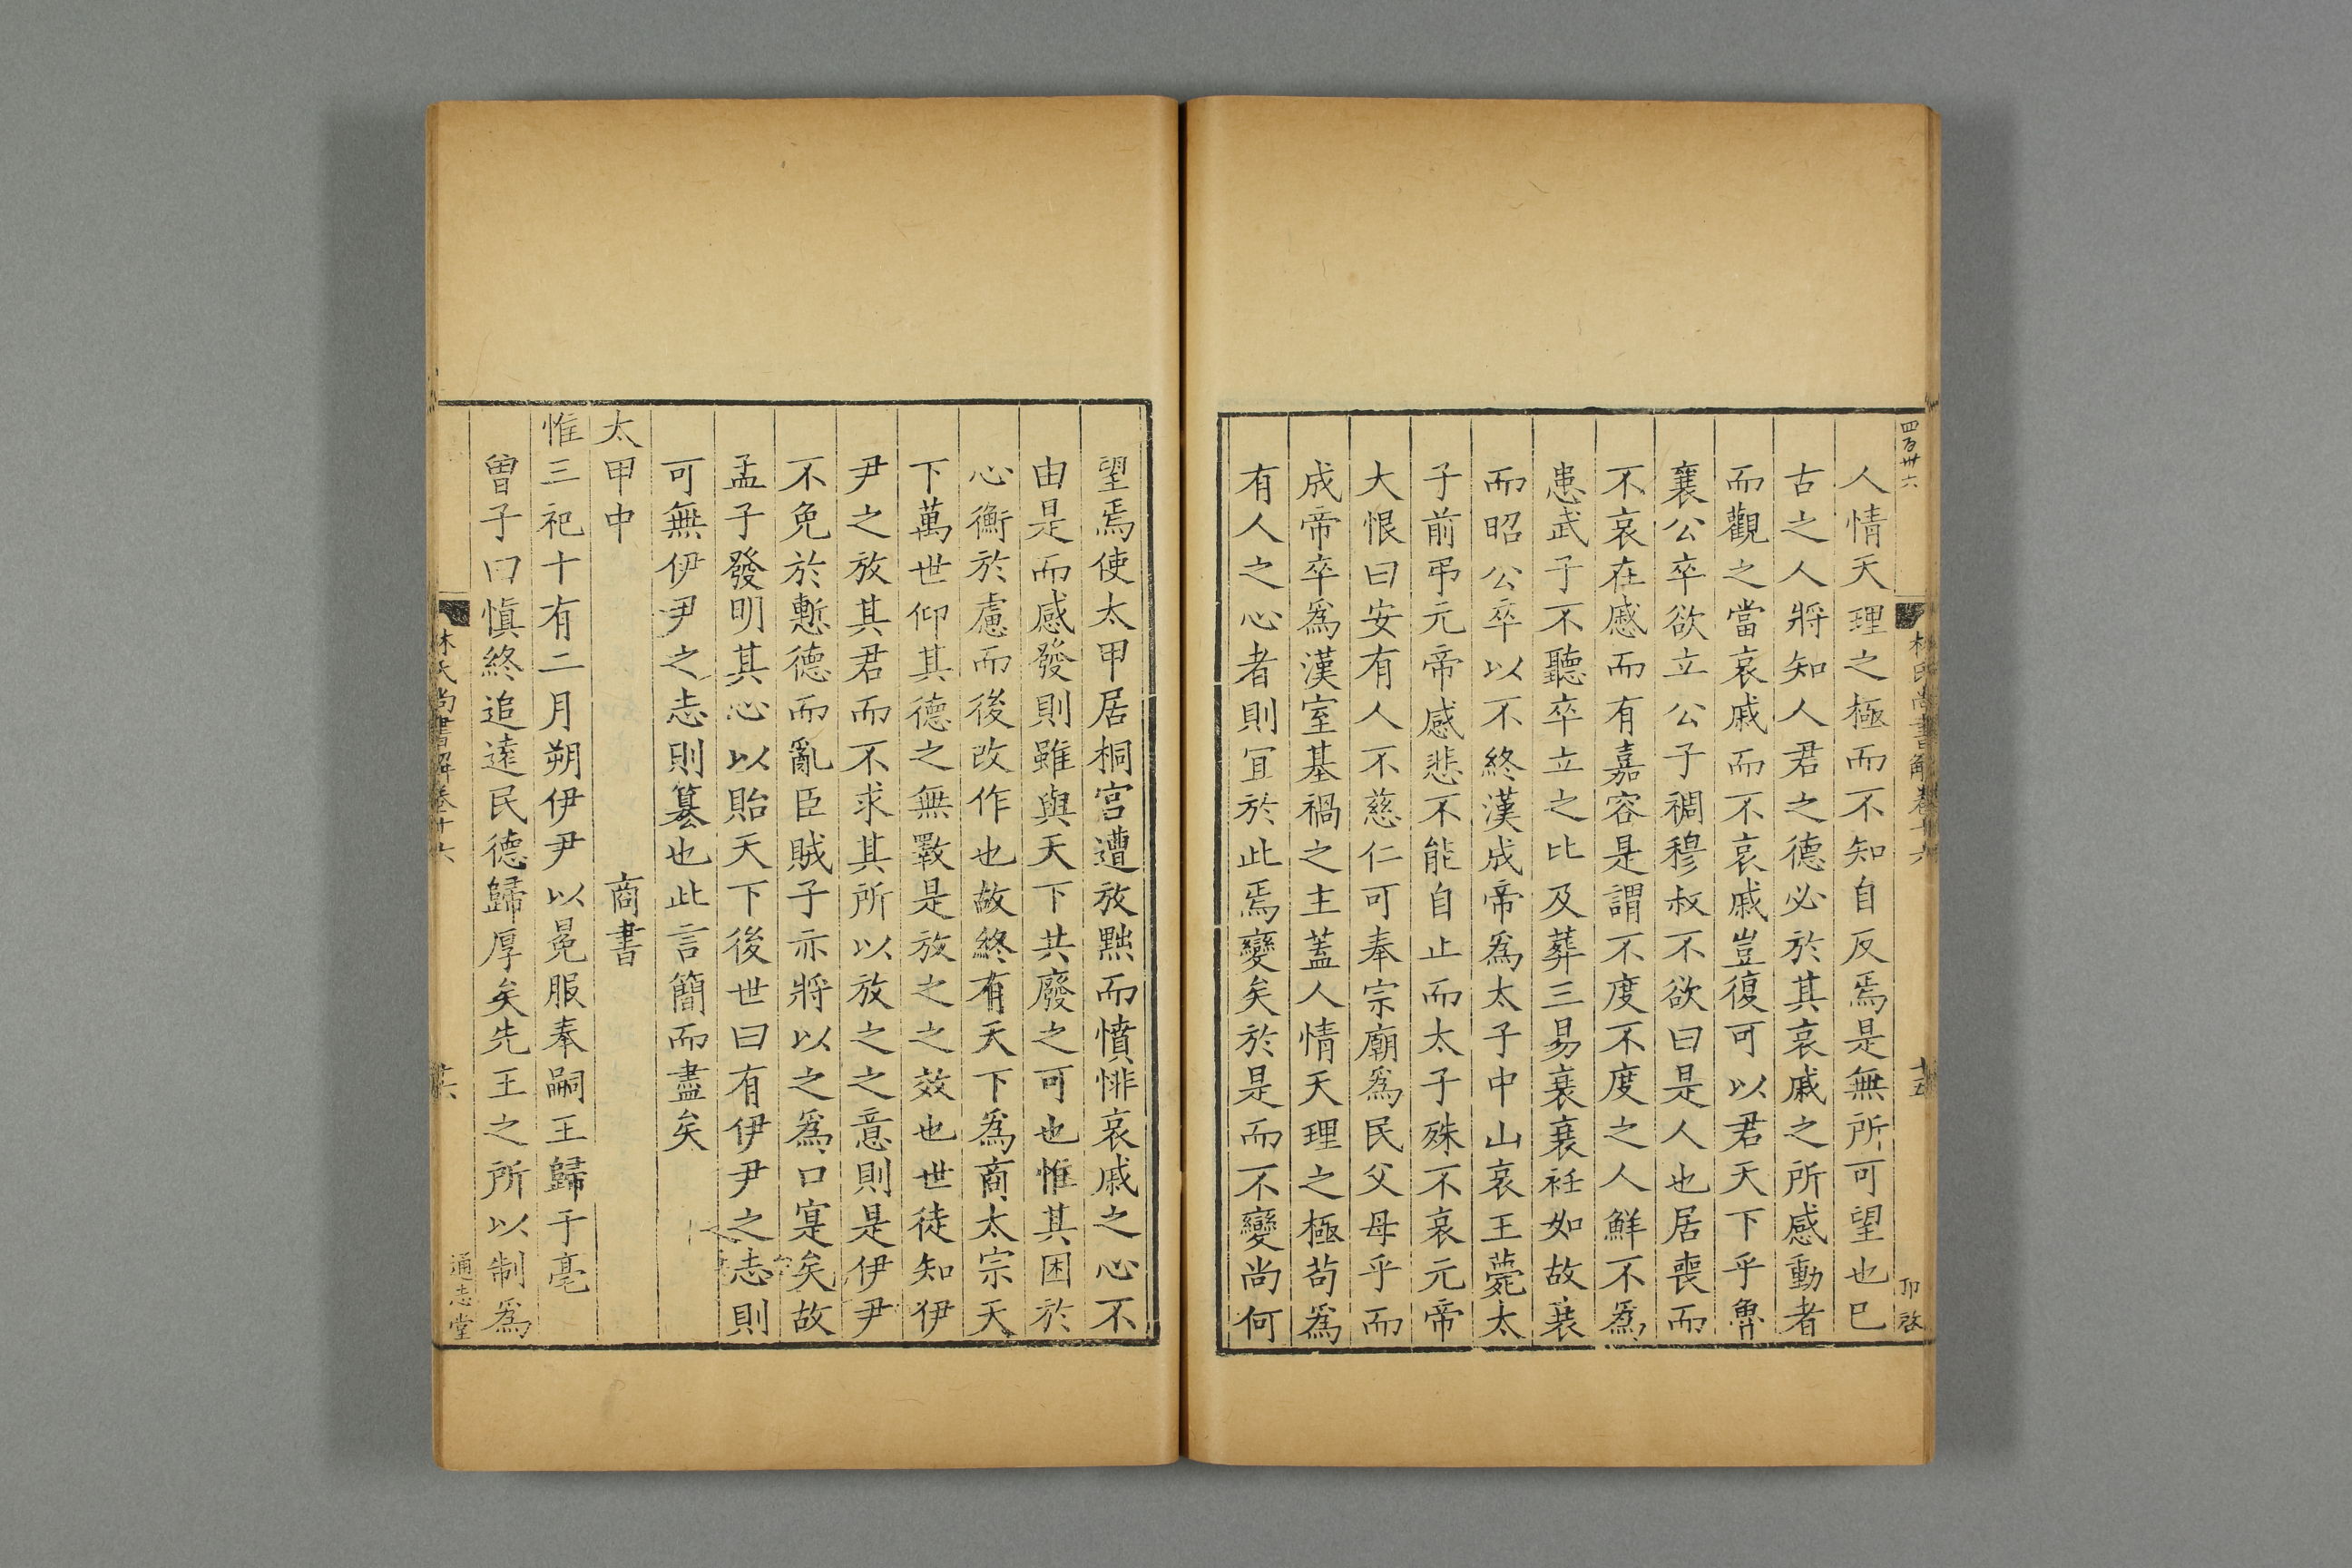 四百卅六
林氏尚書解卷十六
十五
卭啓
人情天理之極而不知自反焉是無所可望也巳
古之人將知人君之德必於其哀戚之所感動者
而觀之當哀戚而不哀戚豈復可以君天下乎魯
襄公卒欲立公子裯穆叔不欲曰是人也居喪而
不哀在慼而有嘉容是謂不度不度之人鮮不爲
患武子不聽卒立之比及葬三易衰衰衽如故衰
而昭公卒以不終漢成帝爲太子中山哀王薨太
子前弔元帝感悲不能自止而太子殊不哀元帝
大恨曰安有人不慈仁可奉宗廟爲民父母乎而
成帝卒爲漢室基禍之主蓋人情天理之極苟爲
有人之心者則宜於此焉變矣於是而不變尚何
望焉使太甲居桐宮遭放黜而憤悱哀戚之心不
由是而感發則雖與天下共廢之可也惟其困於
心衡於慮而後改作也故終有天下爲商太宗天
下萬世仰其德之無斁是放之之效也世徒知伊
尹之放其君而不求其所以放之之意則是伊尹
不免於慙德而亂臣賊子亦將以之爲口寔矣故
孟子發明其心以貽天下後世曰有伊尹之志則
可無伊尹之志則篡也此言簡而盡矣
太甲中 商書
惟三祀十有二月朔伊尹以冕服奉嗣王歸于亳
曾子曰慎終追遠民德歸厚矣先王之所以制爲
林氏尚書解卷十六
十六
通志堂